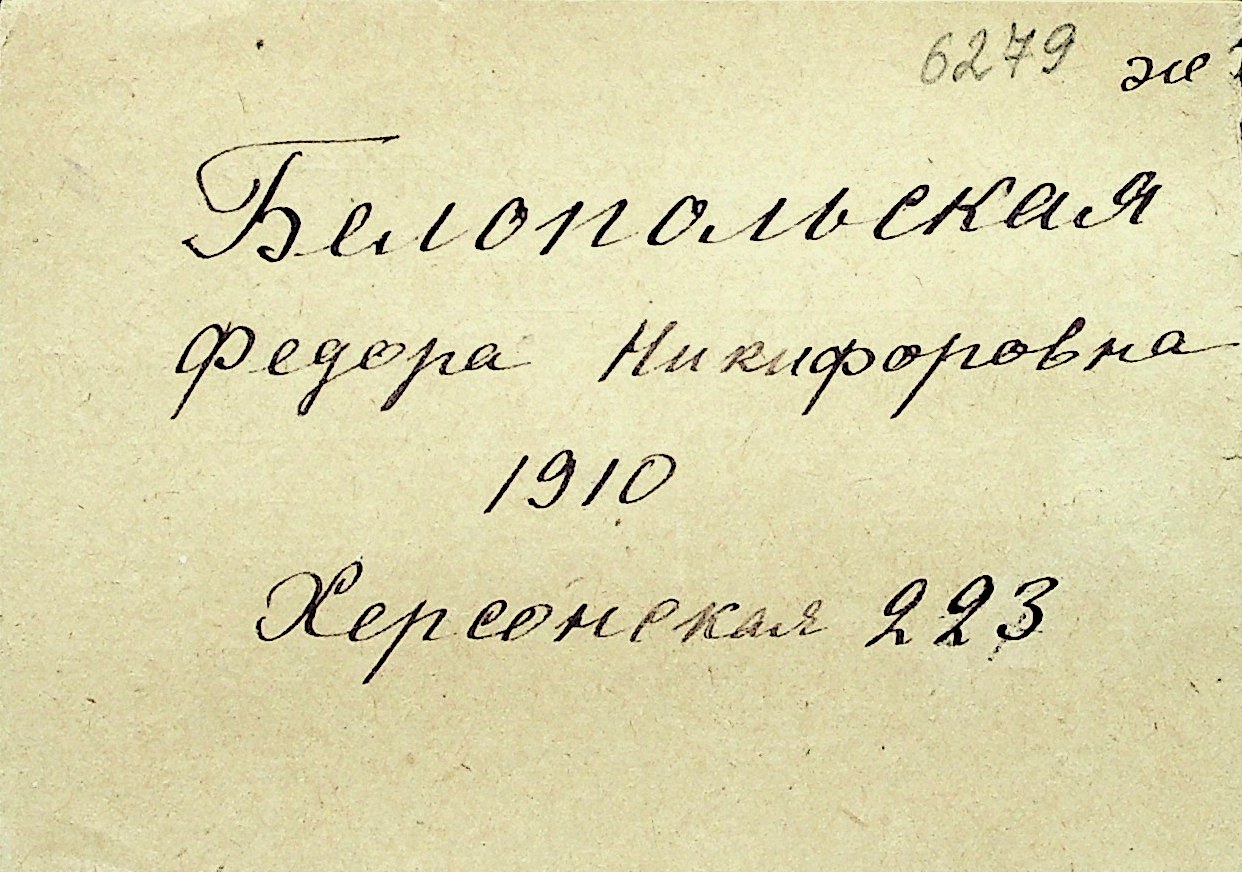 6279
Белопольская
Федора Никифоровна
1910
Херсонская 223